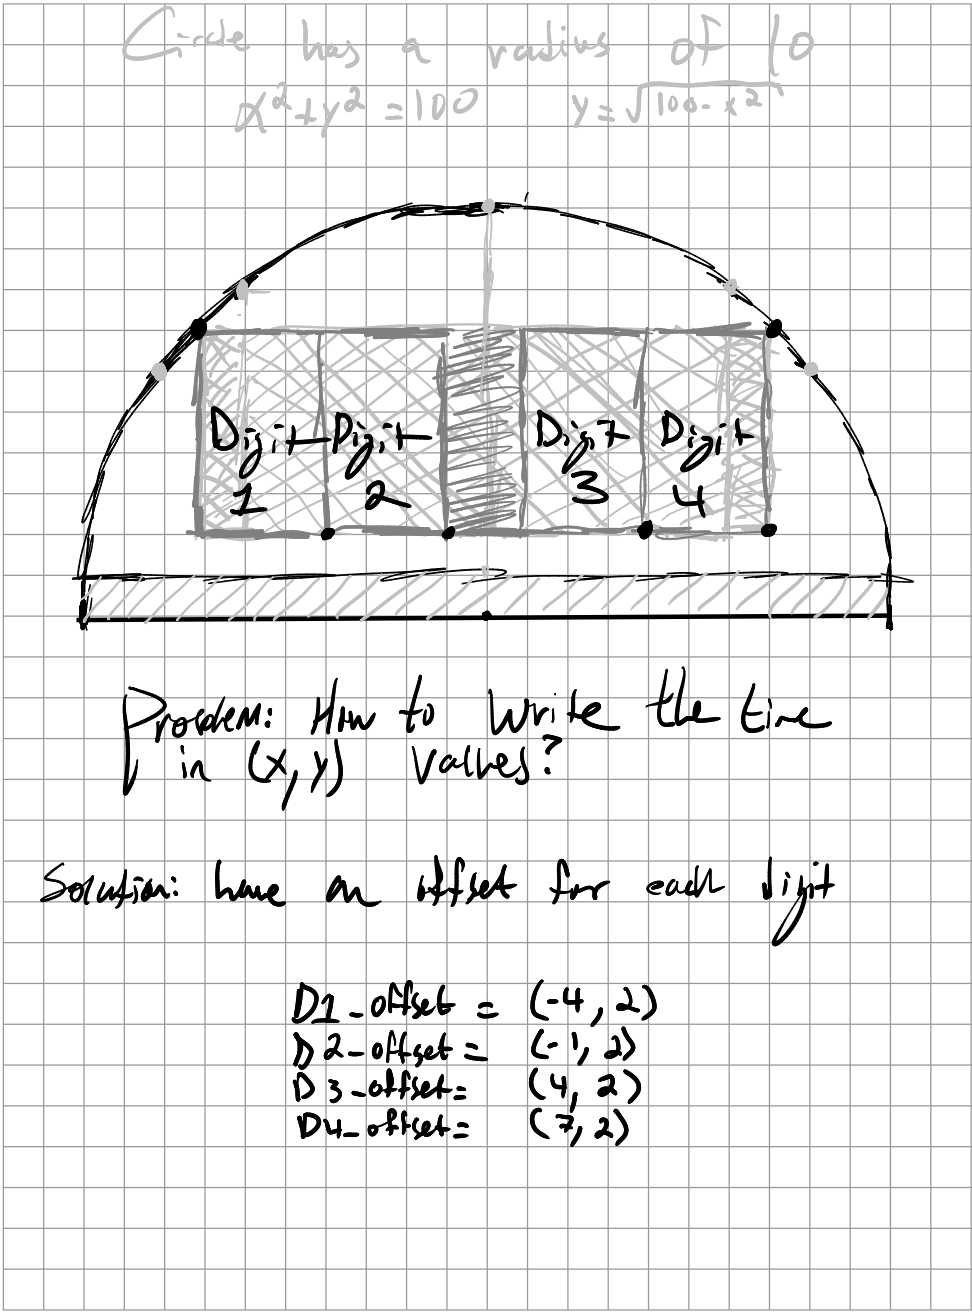 Circle has a radius of 10
x²+y²=100 y=√100-x²
Digit Digit Digit Digit
1 2 3 4
Problem: How to write the time
in (x,y) values?
Solution: have an offset for each digit
D1_offset = (-4, 2)
D2-offset = (-1, 2)
D3-offset= (4, 2)
D4-offset= (7, 2)